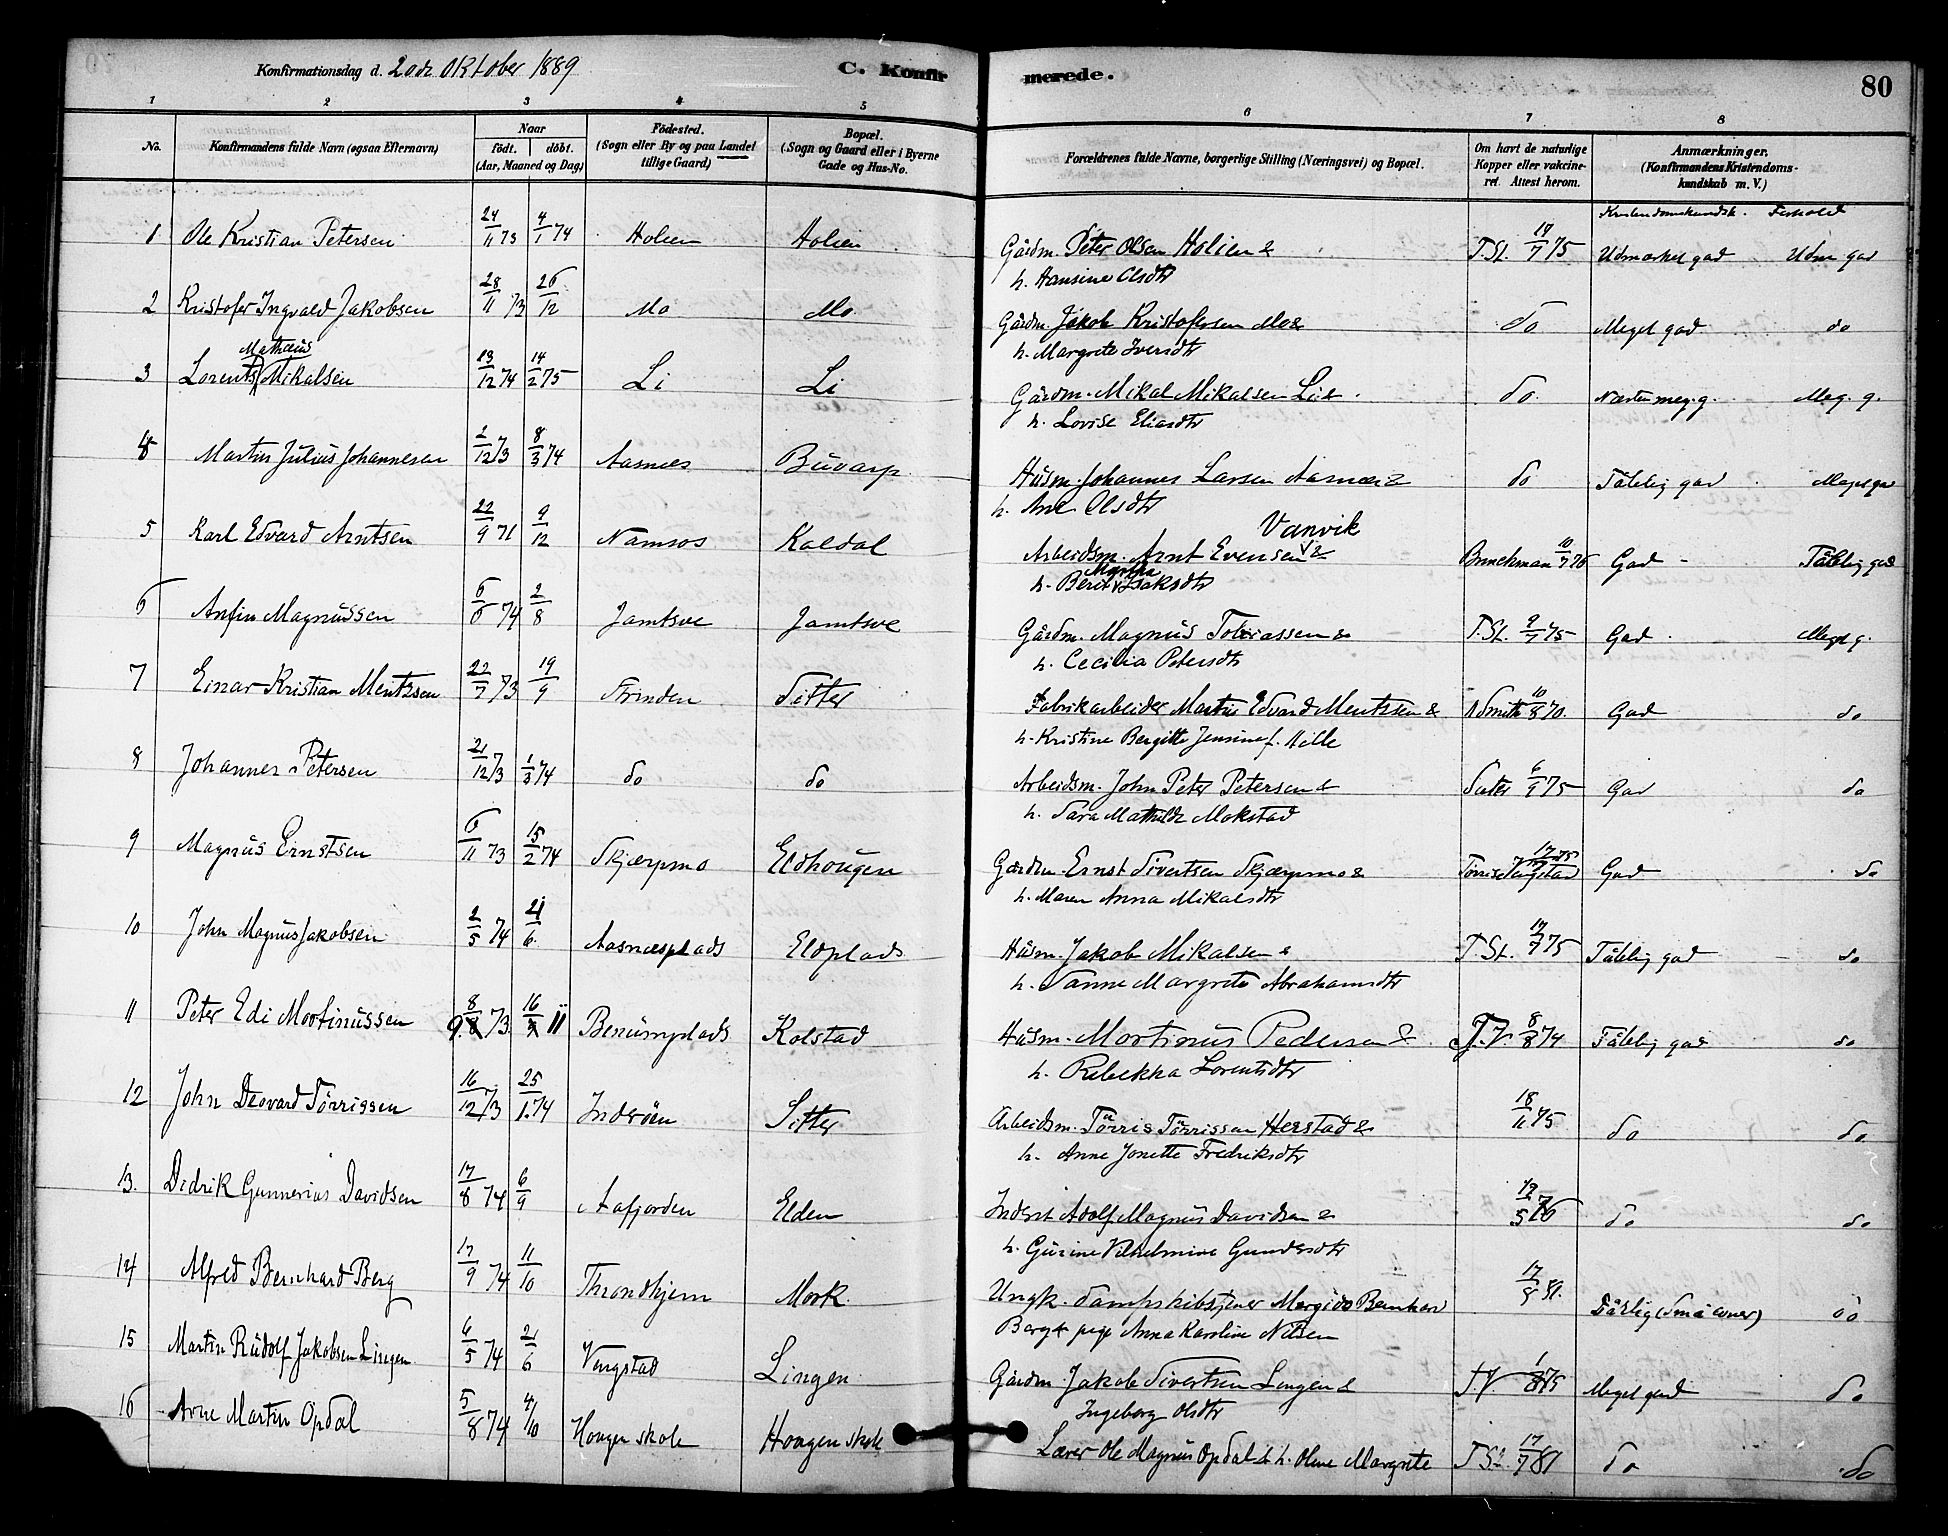 Konfirmationsdag d. 20de Oktober 1889
C. Konfirmerede.
80
1 2 3 4 5 6 7 8
No.
Konfirmandens fulde Navn (ogsaa Efternavn)
Naar
født. døbt.
(Aar, Maaned og Dag)
Fødested.
(Sogn eller By og paa Landet
tillige Gaard)
Bopæl.
(Sogn og Gaard eller i Byerne
Gade og Hus-No.
Forældrenes fulde Navne, borgerlige Stilling (Næringsvei) og Bopæl.
Om havt de naturlige
Kopper eller vakcine-
ret. Attest herom.
Anmærkninger.
(Konfirmandens Kristendoms-
kundskab m. V.)
Kristendomskundsk. Forhold
1 Ole Kristian Petersen 24/11 73 4/1 74 Holien Holien Gårdm. Peter Olsen Holien & T.St. 17/7 75 Udmærket god Udm god
h. Hansine Olsdtr
2 Kristofer Ingvald Jakobsen 28/11 73 26/12 Mo Mo Gårdm. Jakob Kristofersen Mo & do Meget god do
h. Margrete Iversdtr
3 Lorents Mathæus Mikalsen 13/12 74 14/2 75 Li Li Gårdm. Mikal Mikalsen Li & do Næsten meg. g. Meg. g.
h. Lovise Eliasdtr
4 Martin Julius Johannesen 2/12 73 8/3 74 Aasnes Buvarp Husm. Johannes Larsen Aasnes & do Tålelig god Meget god
h. Ane Olsdtr
5 Karl Edvard Arntsen 22/9 71 9/12 Namsos Kaldal Arbeidsm. Arnt Evensen Vanvik & Brinchman 10/7 76 God Tålelig god
h. Berit Martha Isaksdtr
6 Anfin Magnussen 6/6 74 2/8 Jamtsve Jamtsve Gårdm. Magnus Tobiassen & T.St. 9/7 75 God Meget g.
h. Cecilia Petersdtr
7 Einar Kristian Mentzsen 22/7 73 19/9 Strinden Sitter Fabrikarbeider Martin Edvard Mentzsen & 10/8 70. God do
h. Kristine Bergitte Jensine f. Hille
8 Johannes Petersen 21/12 73 1/3 74 do do Arbeidsm. John Peter Petersen & 6/9 75 God do
h. Sara Mathilde Mokstad
9 Magnus Ernstsen 6/11 73 15/2 74 Skjærpmo Eldhougen Gårdm. Ernst Sivertsen Skjærpmo & God do
h. Maren Anna Mikalsdtr
10 John Magnus Jakobsen 2/5 74 21/6. Aasnesplads Eldplads Husm. Jakob Mikalsen & T.St. 17/7 75 Tålelig god do
h. Sanne Margrete Abrahamsdtr
11 Peter Edi Mortinussen 8/9. 73 16/11 Benumplads Kolstad Husm. Mortinus Pedersen & T.V. 8/8 74 Tålelig god do
h. Rebekka Lorentsdtr
12 John Deovard Tørrissen 16/12 73 25/1. 74 Inderøen Sitter Arbeidsm. Tørris Tørrissen Herstad & 18/11 75 do do
h. Anne Jonette Fredriksdtr
13. Didrik Gunnerius Davidsen 17/8 74 6/9 Aafjorden Elden Inderst Adolf Magnus Davidsen & 12/5 76 do do
h. Gurine Vilhelmine Gundersdtr
14 Alfred Bernhard Berg 17/9 74 11/10 Throndhjem Mork Ungk. Dampskibstjener Bernhard 17/9 81. Dårlig (Små evner) do
Berg & pige Anna Karoline Nilsen
15 Martin Rudolf Jakobsen Lingen 6/5 74 21/6 Vengstad Lingen Gårdm. Jakob Sivertsen Lingen & TV 1/8 75 Meget god do
Ingeborg Olsdtr
16 Arne Martin Opdal 5/8 74 4/10 Hougen skole Hougen skole Lærer Ole Magnus Opdal & h. Oline Margrete T St. 17/7 81 do do